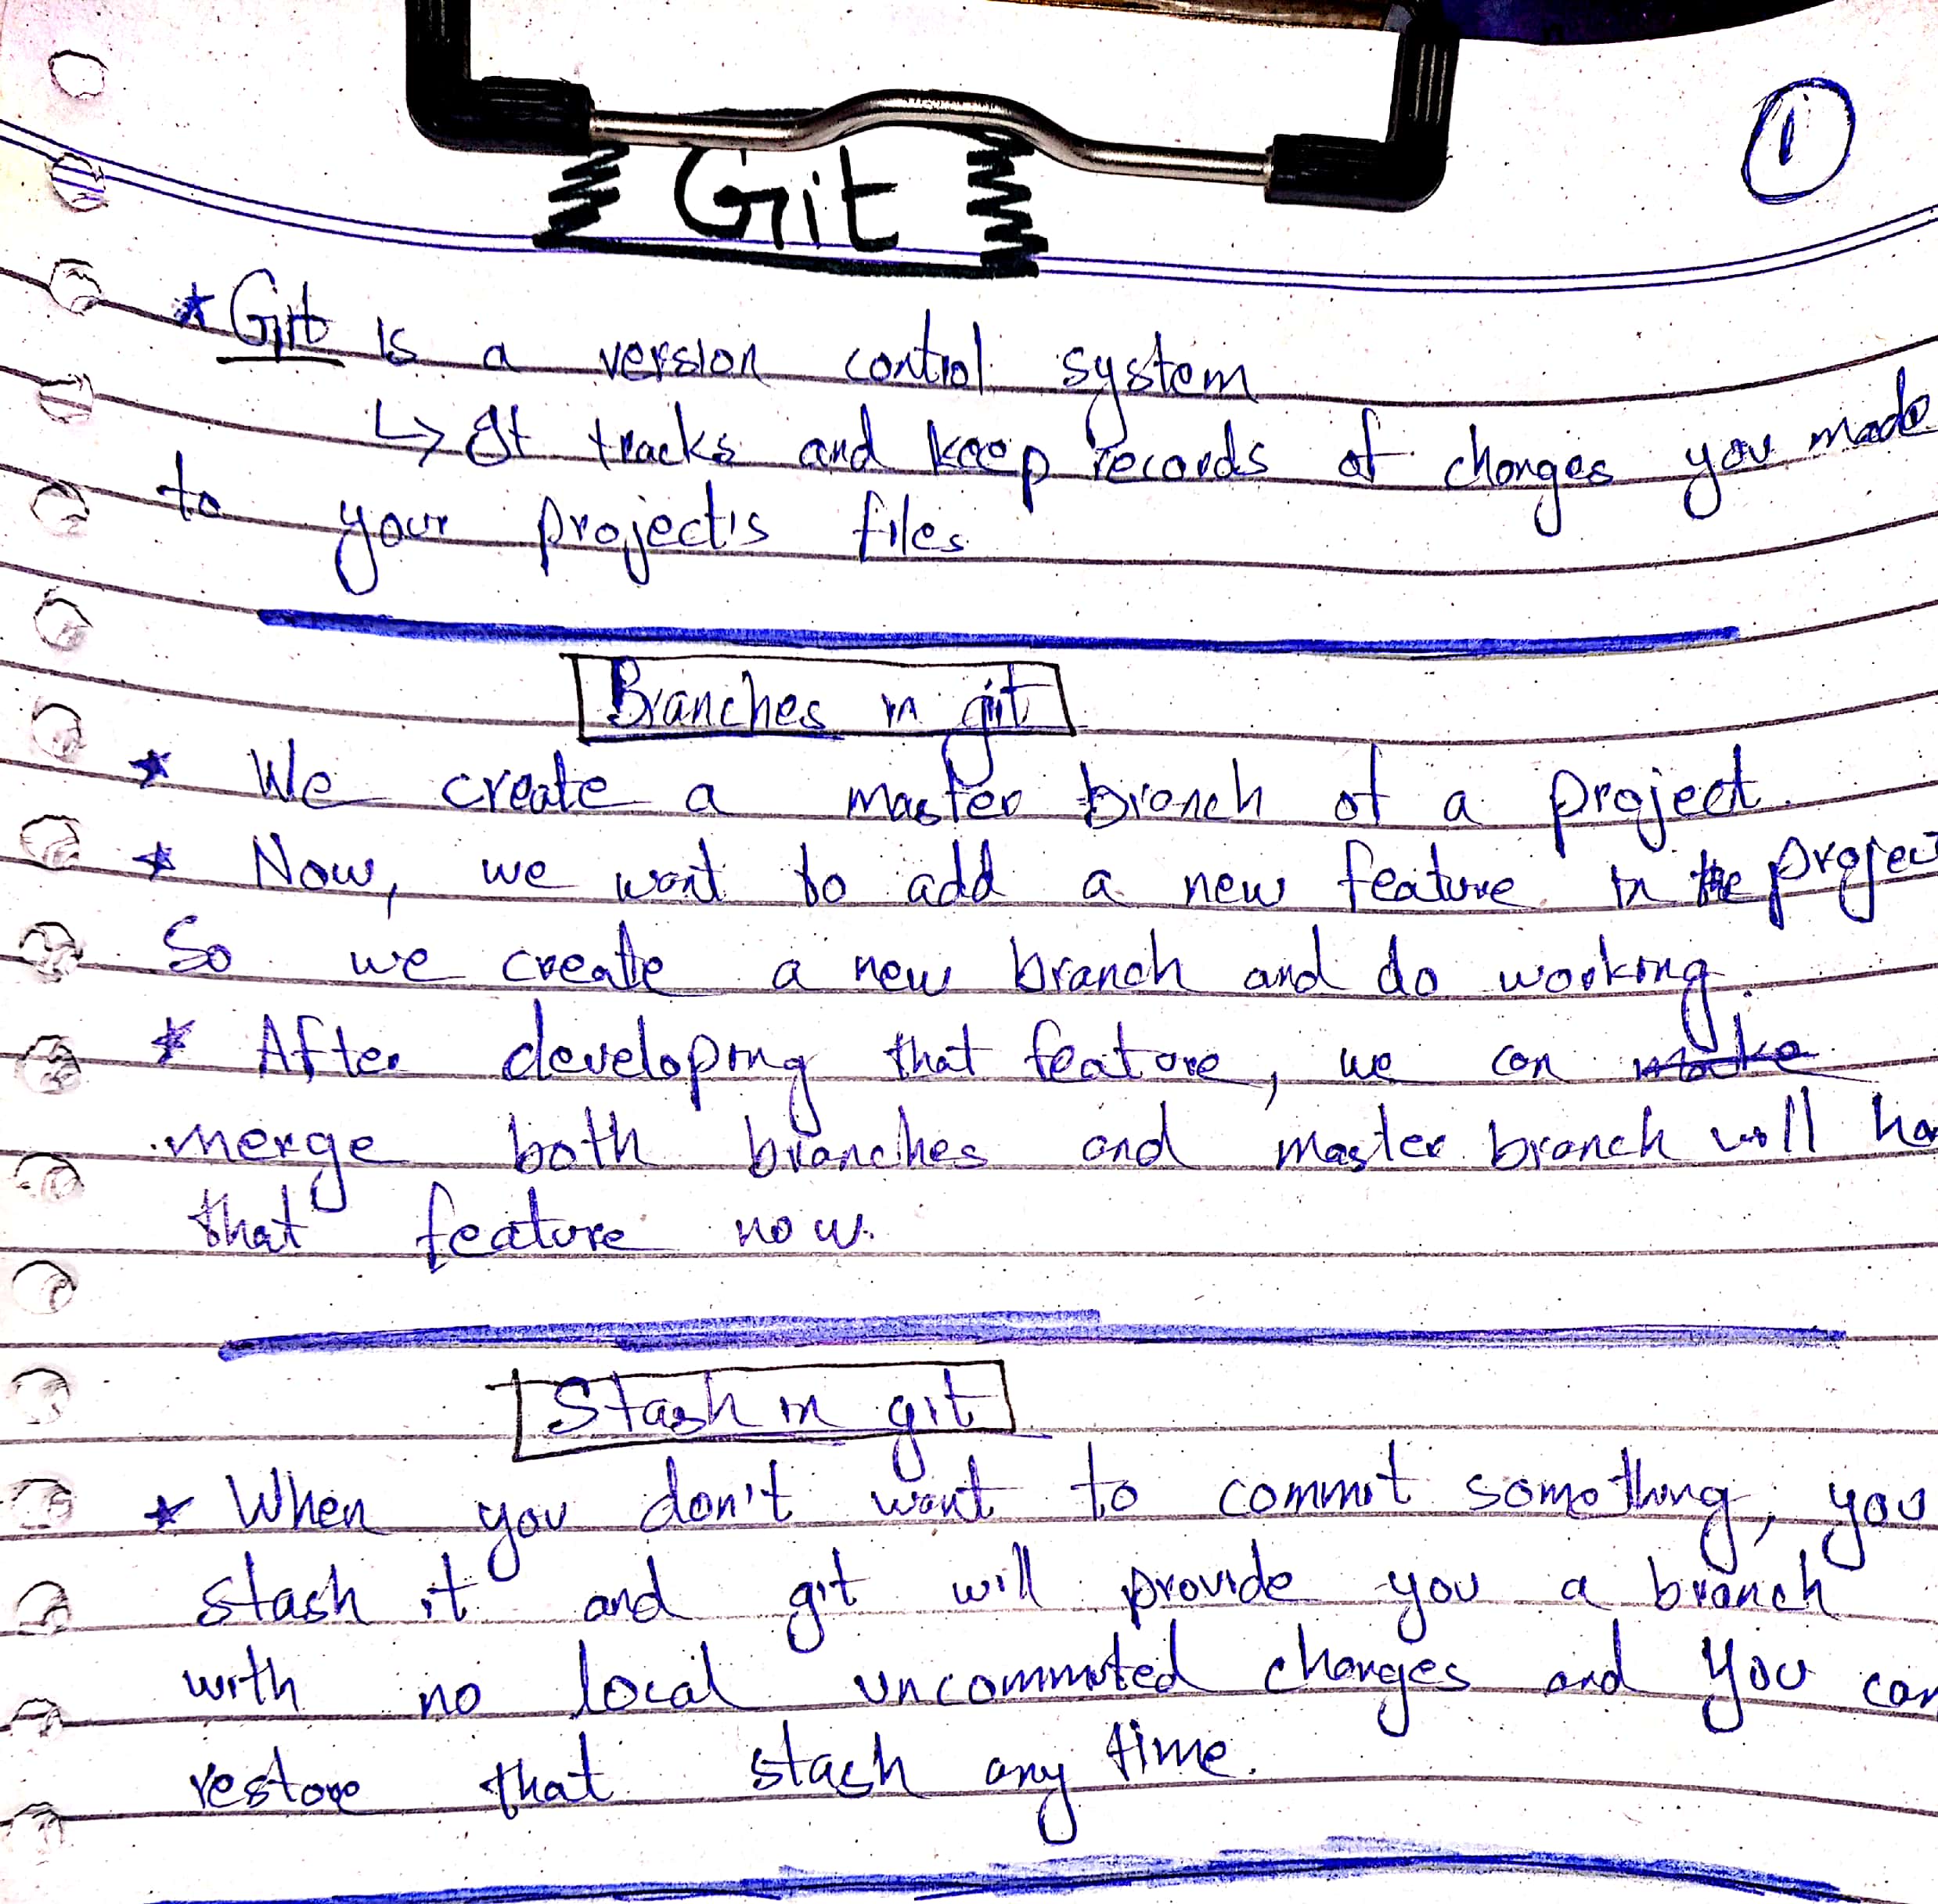 ①
Git
* Git is a version control system
↳ It tracks and keep records of changes you made
to your project's files
Branches in git
* We create a master branch of a project.
* Now, we want to add a new feature in the projec
So we create a new branch and do working.
* After developing that feature, we can ~~make~~
merge both branches and master branch will ha
that feature now.
Stash in git
* When you don't want to commit something, you
stash it and git will provide you a branch
with no local uncommited changes and you can
restore that stash any time.